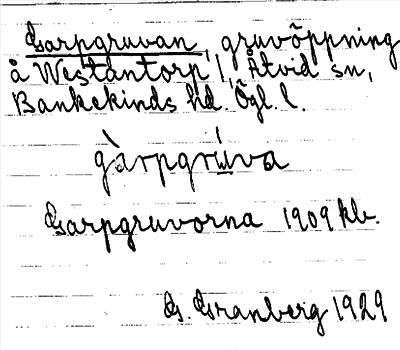 Garpgruvan, gruvöppning
å Westantorp 1, Åtvid sn,
Bankekinds hd. Ögl. l.
gàrpgrúva
Garpgruvorna 1909 kb.
G. Granberg 1929